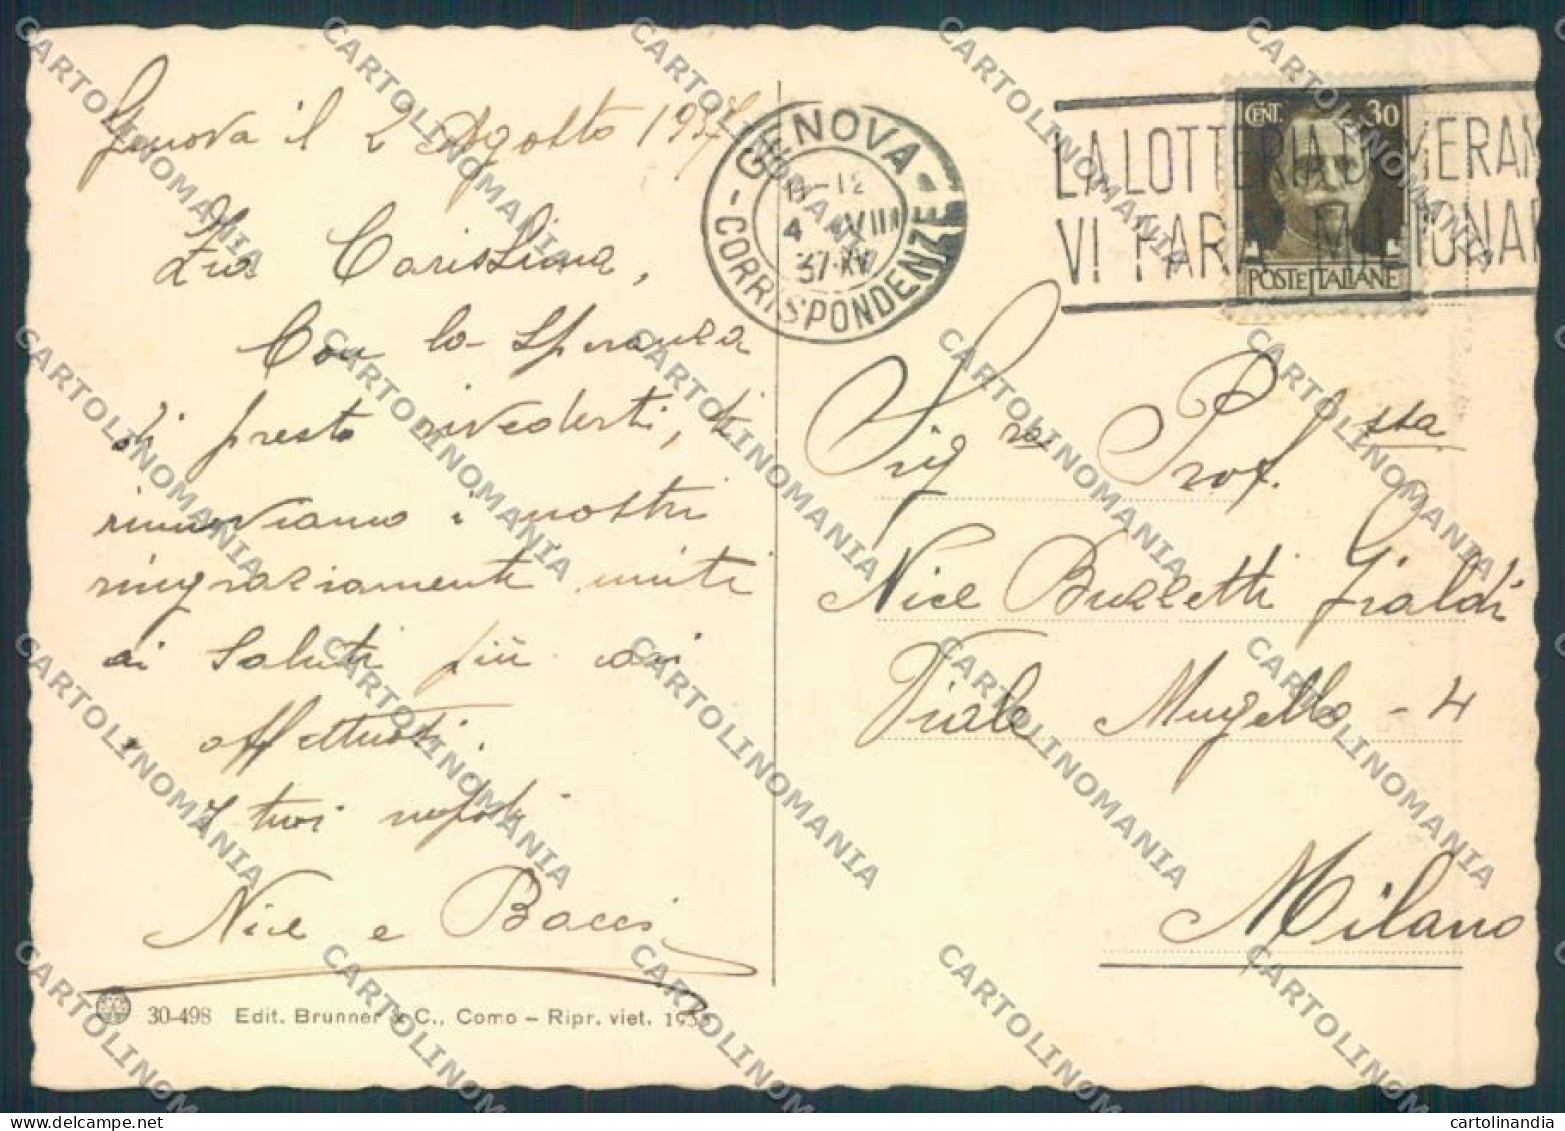 Genova il 2 Agosto 1937
Zia Carissima,
Con la speranza
di presto rivederti, ti
rinnoviamo i nostri
ringraziamenti uniti
ai saluti più cari
affettuosi.
I tuoi nipoti
Nice e Bacci
30-498 Edit. Brunner & C., Como – Ripr. viet.
GENOVA
11-12
4 VIII
37·XV
CORRISPONDENZE
LA LOTTERIA DI MERAN
VI FARÀ MILIONAR
CENT. 30
POSTE ITALIANE
Sig.ra Prof.ssa
Nice Buzzetti Gialdi
Viale Mugello - 4
Milano
CARTOLINOMANIA
cartolinandia